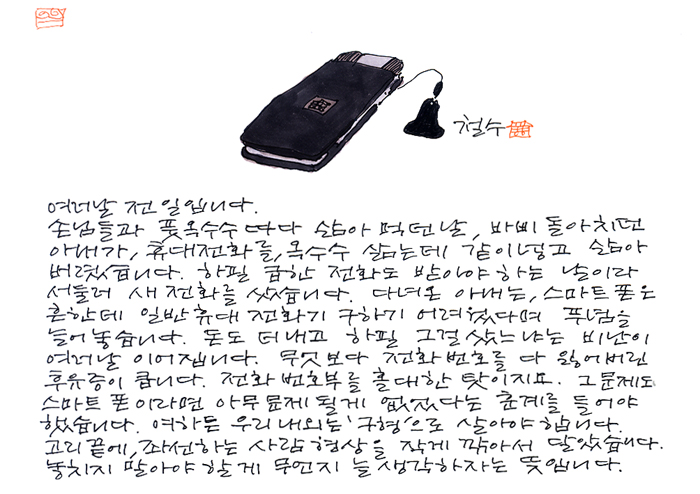 철수
여러날 전 일입니다.
손님들과 풋옥수수 따다 삶아 먹던날, 바삐 돌아치던
아내가, 휴대전화를, 옥수수 삶는데 같이넣고 삶아
버렸습니다. 하필 급한 전화도 받아야 하는 날이라
서둘러 새 전화를 샀습니다. 다녀온 아내는, 스마트폰은
흔한데 일반휴대 전화기 구하기 어려웠다며 푸념을
늘어놓습니다. 돈도 더내고 하필 그걸 샀느냐는 비난이
여러날 이어집니다. 무엇보다 전화번호를 다 잃어버린
후유증이 큽니다. 전화번호부를 홀대한 탓이지요. 그문제도
스마트폰이라면 아무문제될게 없었다는 훈계를 들어야
했습니다. 여하튼 우리내외는 '구형'으로 살아야합니다.
고리끝에, 좌선하는 사람형상을 작게 깍아서 달았습니다.
놓치지 말아야 할게 무언지 늘생각하자는 뜻입니다.